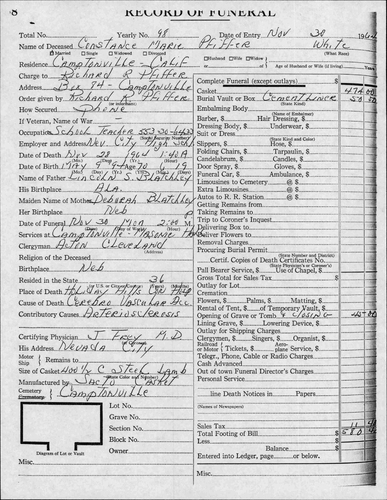 8 RECORD OF FUNERAL
Total No. Yearly No. 98 Date of Entry Nov 30 1964
Name of Deceased Constance Marie Pfiffer White
Married Single Widowed Divorced Husband Wife Widow of
Residence Camptonville - Calif Age of Husband or Wife (if living) Years
Charge to Richard R Pfiffer
Address Box 94 - Camptonville
Order given by Richard R Pfiffer
How Secured Phone
If Veteran, Name of War -
Occupation School Teacher
Employer and Address Nev City High Schl
Date of Death Nov 28 1964 1:40 A
Date of Birth May
Name of Father Lincoln S. Blatchley
His Birthplace Ala.
Maiden Name of Mother Deborah Blatchley
Her Birthplace Neb
Date of Funeral Nov 30 Mon 2:00 M.
Services at Camptonville - Masonic Hall
Clergyman Acton Cleveland
Religion of the Deceased
Birthplace Neb
Resided in the State 36
Place of Death
Cause of Death Cerebro Vascular Acc
Contributory Causes Arteriosclerosis
Certifying Physician J Frey M.D.
His Address Nevada City
Motor Ship Remains to
Size of Casket
Manufactured by Sacto Casket
Cemetery Crematory Camptonville
Lot No.
Grave No.
Section No.
Block No.
Owner
Diagram of Lot or Vault
Misc.
Complete Funeral (except outlays) $
Casket
Burial Vault or Box Cement Liner
(State Kind)
Embalming Body
(Name of Embalmer)
Barber, $ Hair Dressing, $
Dressing Body, $ Underwear, $
Suit or Dress
(State Kind and Color)
Slippers, $ Hose, $
Folding Chairs, $ Tarpaulin, $
Candelabrum, $ Candles, $
Door Spray, $ Gloves, $
Funeral Car, $ Ambulance, $
Limousines to Cemetery @ $
Extra Limousines @ $
Autos to R. R. Station @ $
Getting Remains from
Taking Remains to
Trip to Coroner's Inquest
Delivering Box to
Deliver Flowers to
Removal Charges
Procuring Burial Permit
(State Number and District)
Certif. Copies of Death Certificates No.
Pall Bearer Service, $ Use of Chapel, $
Gross Total for Sales Tax $
Outlay for Lot
Cremation
Flowers, $ Palms, $ Matting, $
Rental of Tent, $ of Temporary Vault, $
Opening of Grave or Tomb
Lining Grave, $ Lowering Device, $
Outlay for Shipping Charges
Clergymen, $ Singers, $ Organist, $
Railroad Motor Tickets, $ Aeroplane Service, $
Telegr., Phone, Cable or Radio Charges
Cash Advanced
Out of town Funeral Director's Charges
Personal Service
line Death Notices in Papers
(Names of Newspapers)
Sales Tax
Total Footing of Bill $
Less
Balance $
Entered into Ledger, page or below.
Misc.